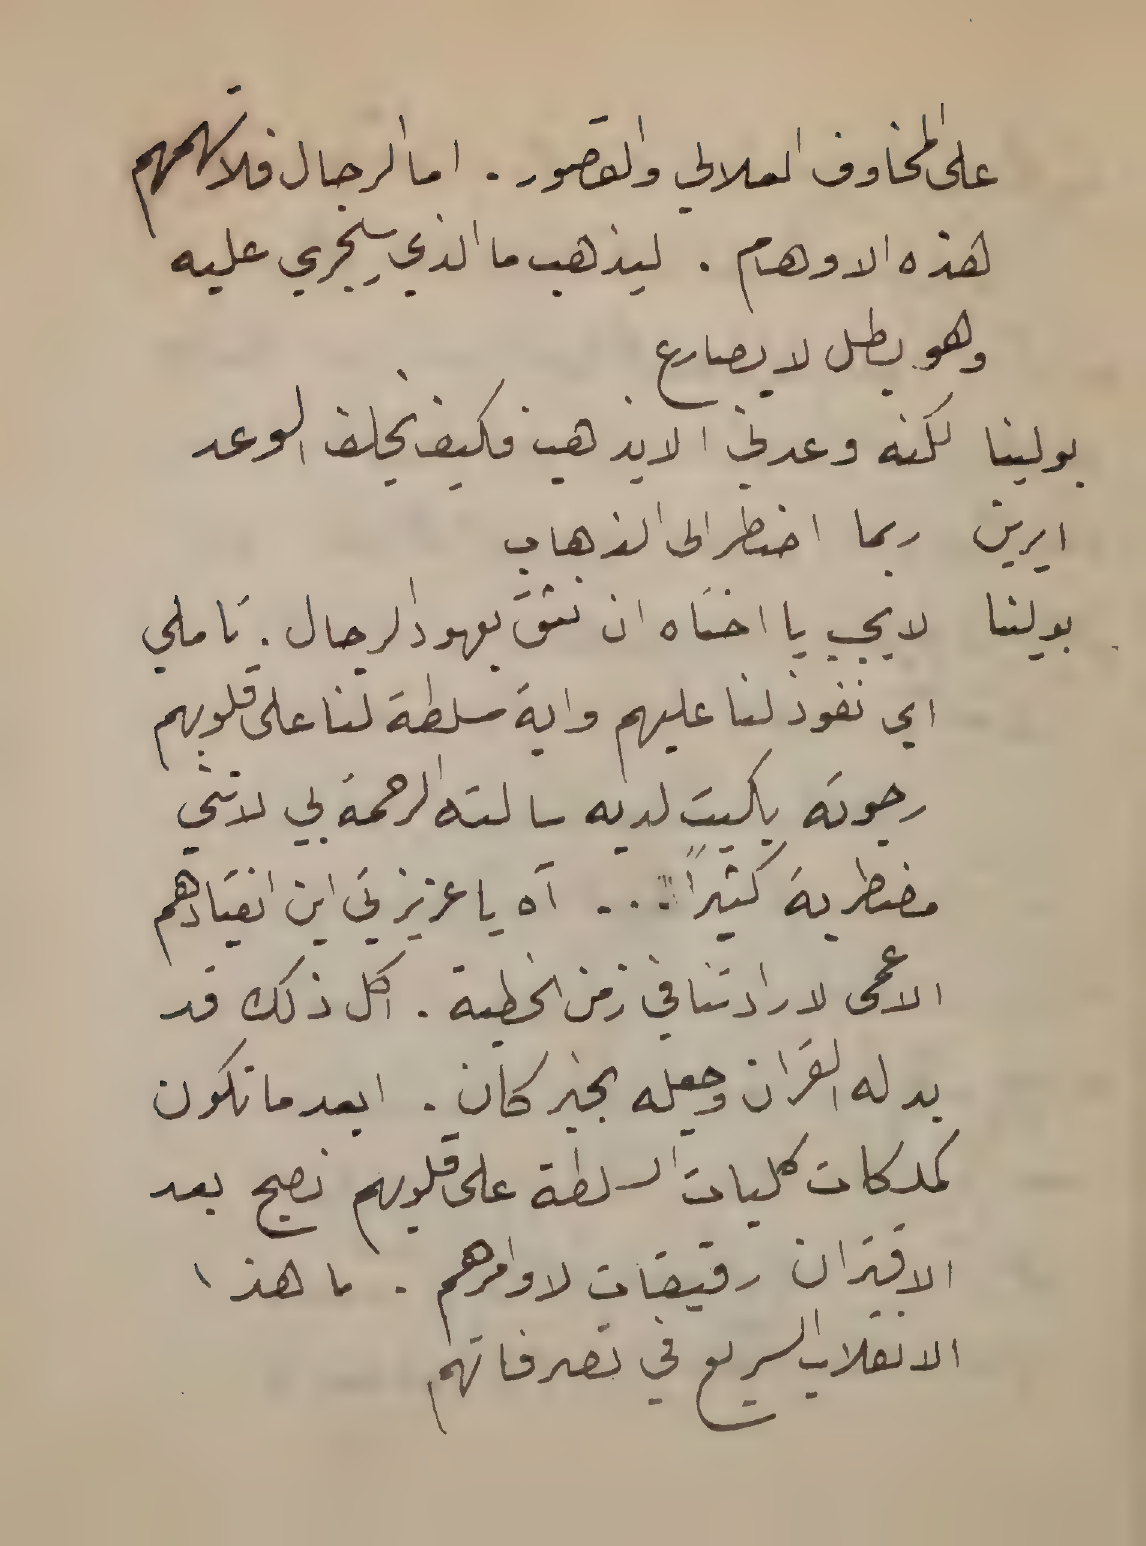 على المخاوف العلالي والقصور. اما الرجال فلا تهمهم
هذه الاوهام. ليذهب ما الذي سيجري عليه
وهو بطل لا يصارع
بولينا لكنه وعدني الا يذهب فكيف يخلف الوعد
ايرين ربما اضطر الى الذهاب
بولينا لا يجب يا اختاه ان نثق بعهود الرجال. تاملي
اي نفوذ لنا عليهم واية سلطة لنا على قلوبهم
رجوته بكيت لديه سالته الرحمة بي لانني
مضطربة كثيراً... آه يا عزيزتي اين انقيادهم
الاعمى لارادتنا في زمن الخطبة. اكل ذلك قد
بدله القران وجعله بخبر كان. ابعد ما نكون
كملكات كليات السلطة على قلوبهم نصبح بعد
الاقتران رقيقات لاوامرهم. ما هذا
الانقلاب السريع في تصرفاتهم